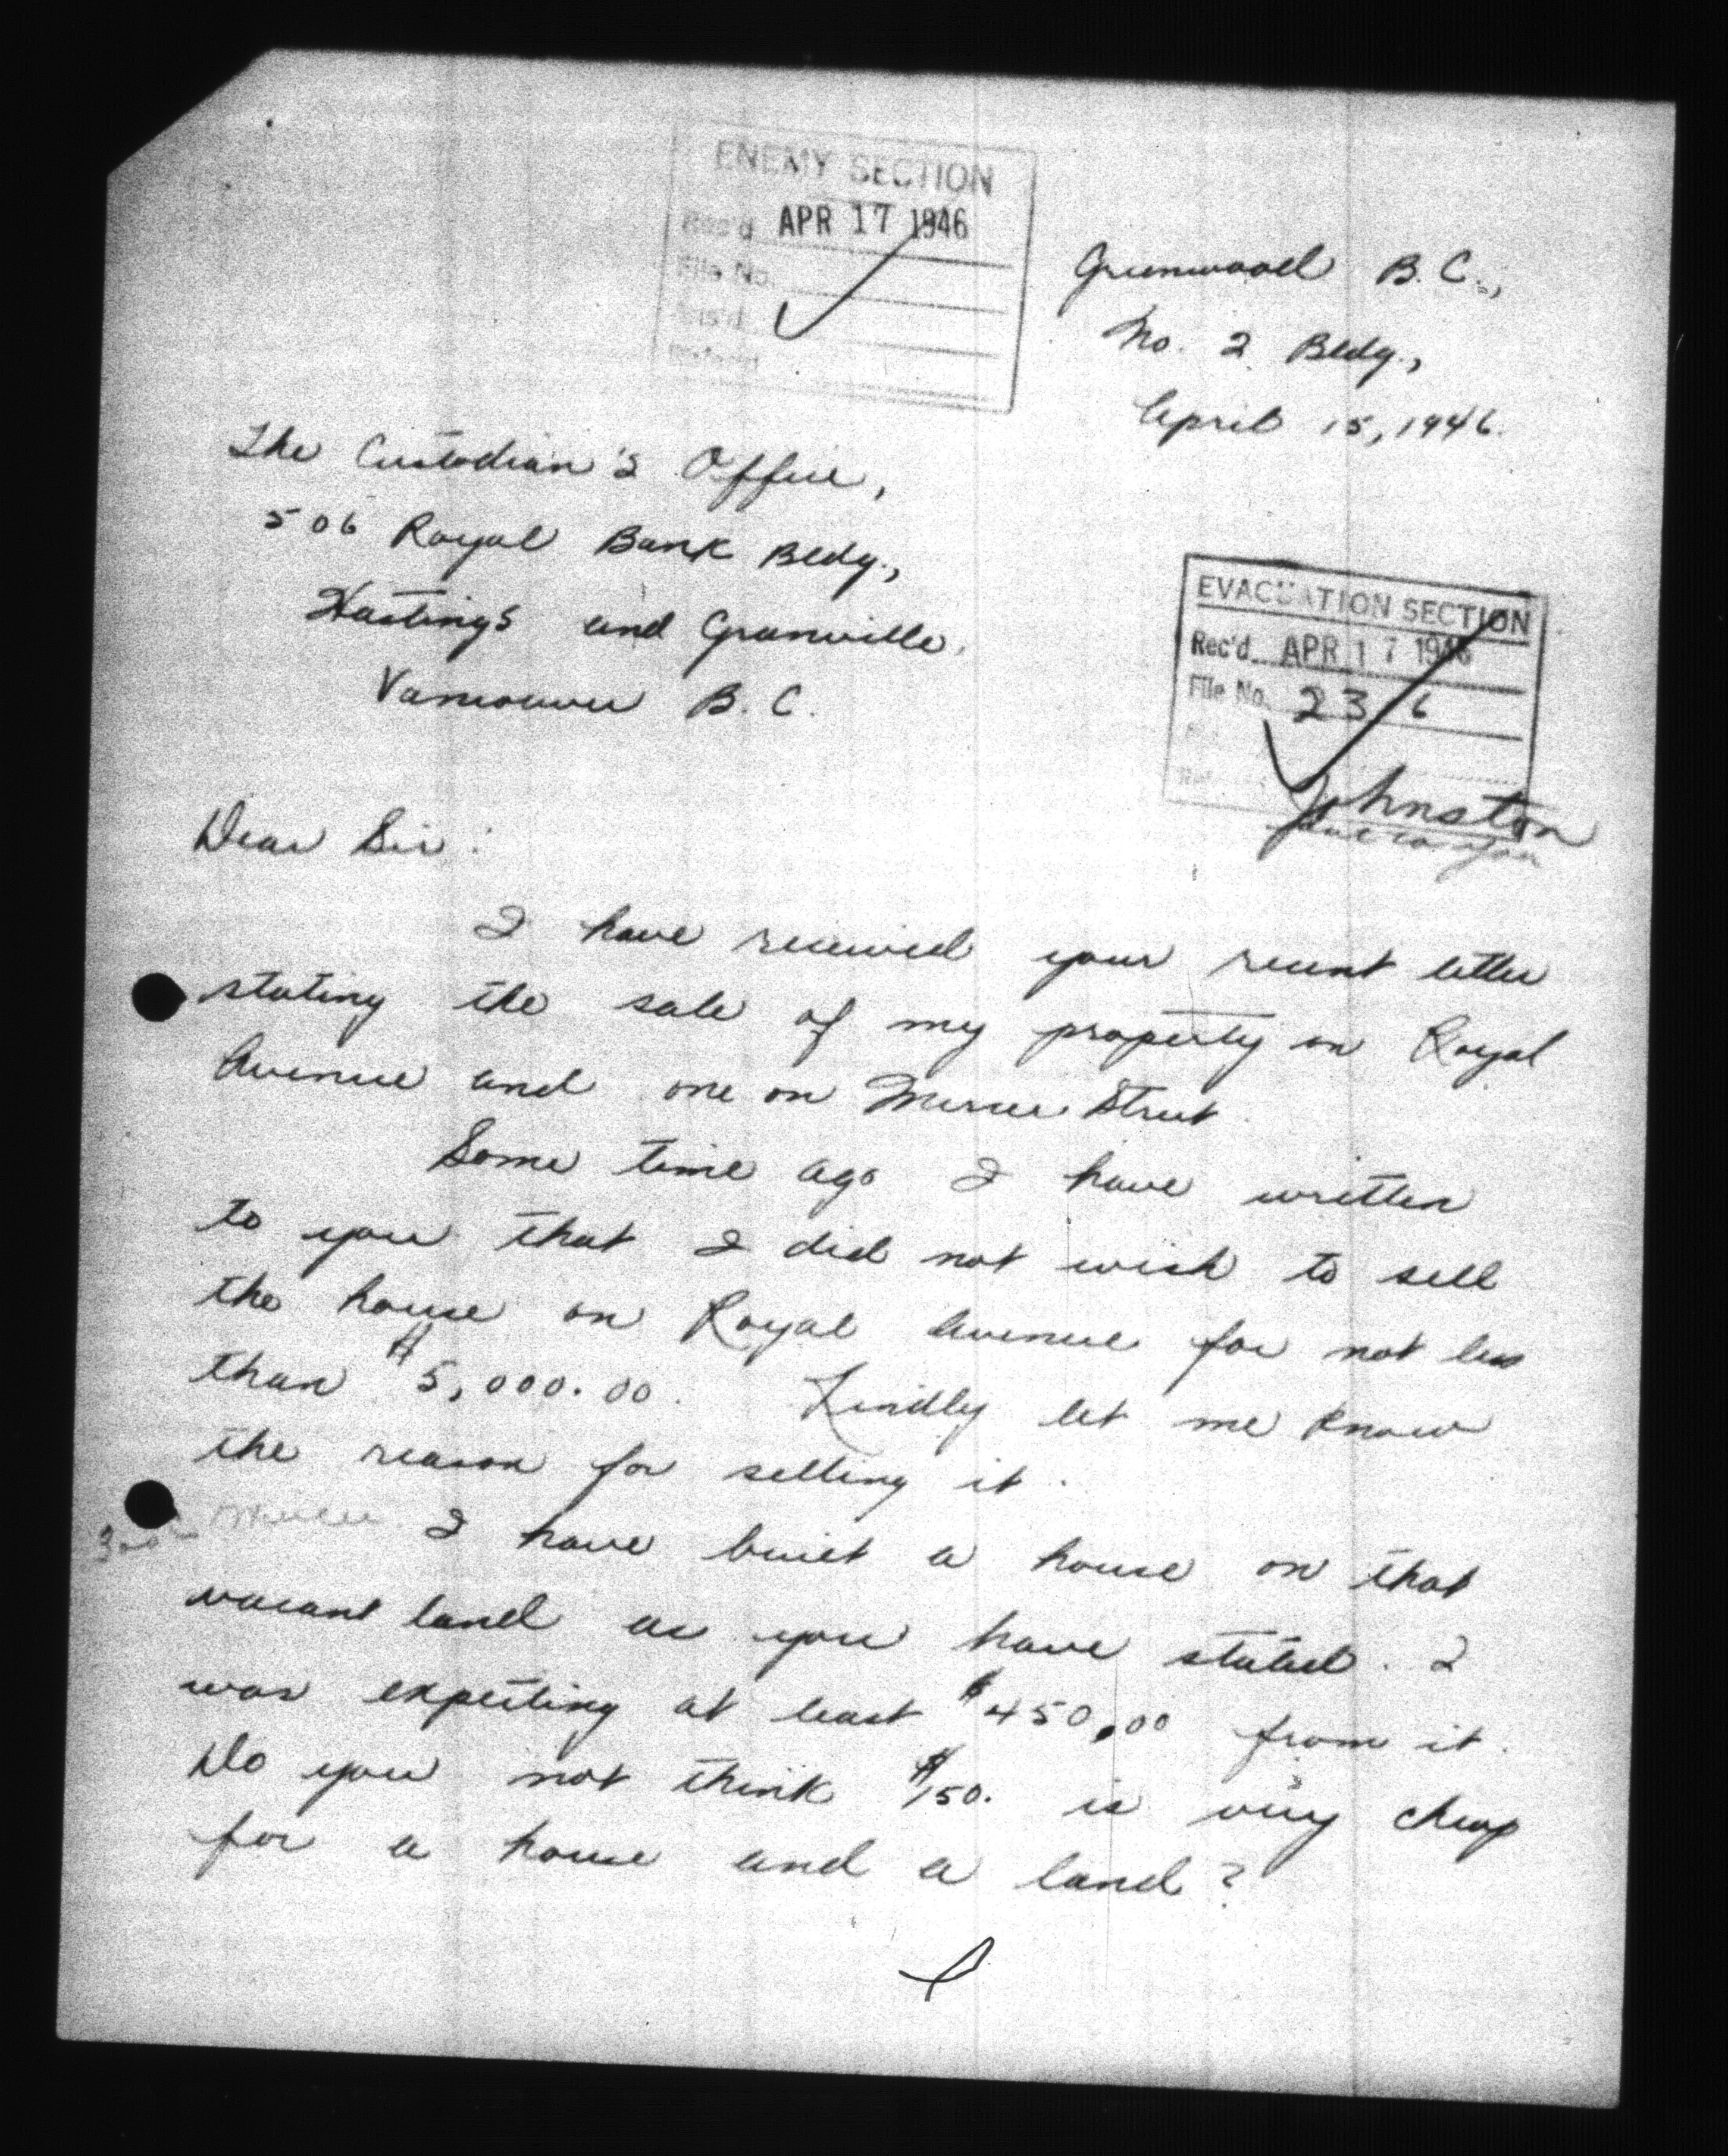 ENEMY SECTION
Rec'd APR 17 1946
File No.
Greenwood B.C.,
No. 2 Bldg.,
April 15, 1946.
The Custodian's Office,
506 Royal Bank Bldg.,
Hastings and Granville,
Vancouver B.C.
EVACUATION SECTION
Rec'd. APR 17 1946
File No. 23 6
Johnston
Dear Sir:
I have received your recent letter
stating the sale of my property on Royal
Avenue and one on Mercer Street.
Some time ago I have written
to you that I did not wish to sell
the house on Royal Avenue for not less
than $5,000.00. Kindly let me know
the reason for selling it.
I have built a house on that
vacant land as you have stated. I
was expecting at least $450.00 from it.
Do you not think $150. is very cheap
for a house and a land?